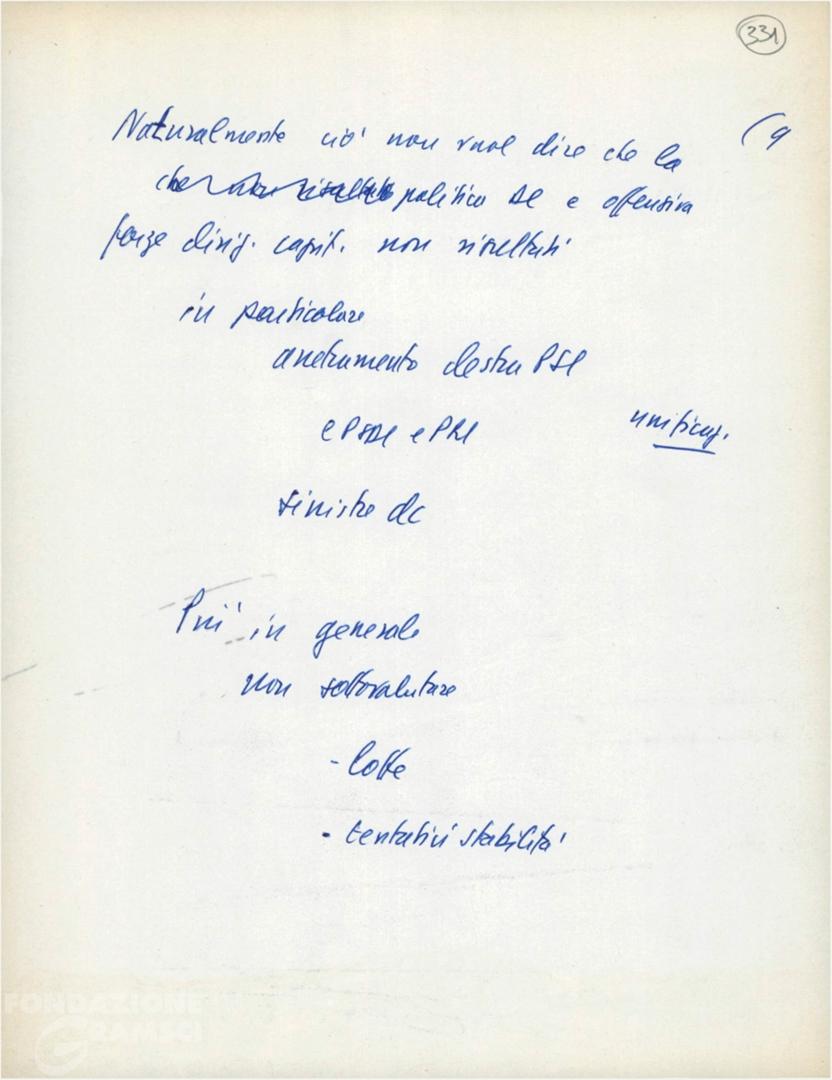 331
(9
Naturalmente ciò non vuol dire che la
politico DC e offensiva
forze dirig. capit. non risultati
in particolare
destra PSI
e PSDI e PRI
unificaz.
sinistre dc
Più in generale
non sottovalutare
- lotte
- tentativi stabilità
FONDAZIONE
GRAMSCI